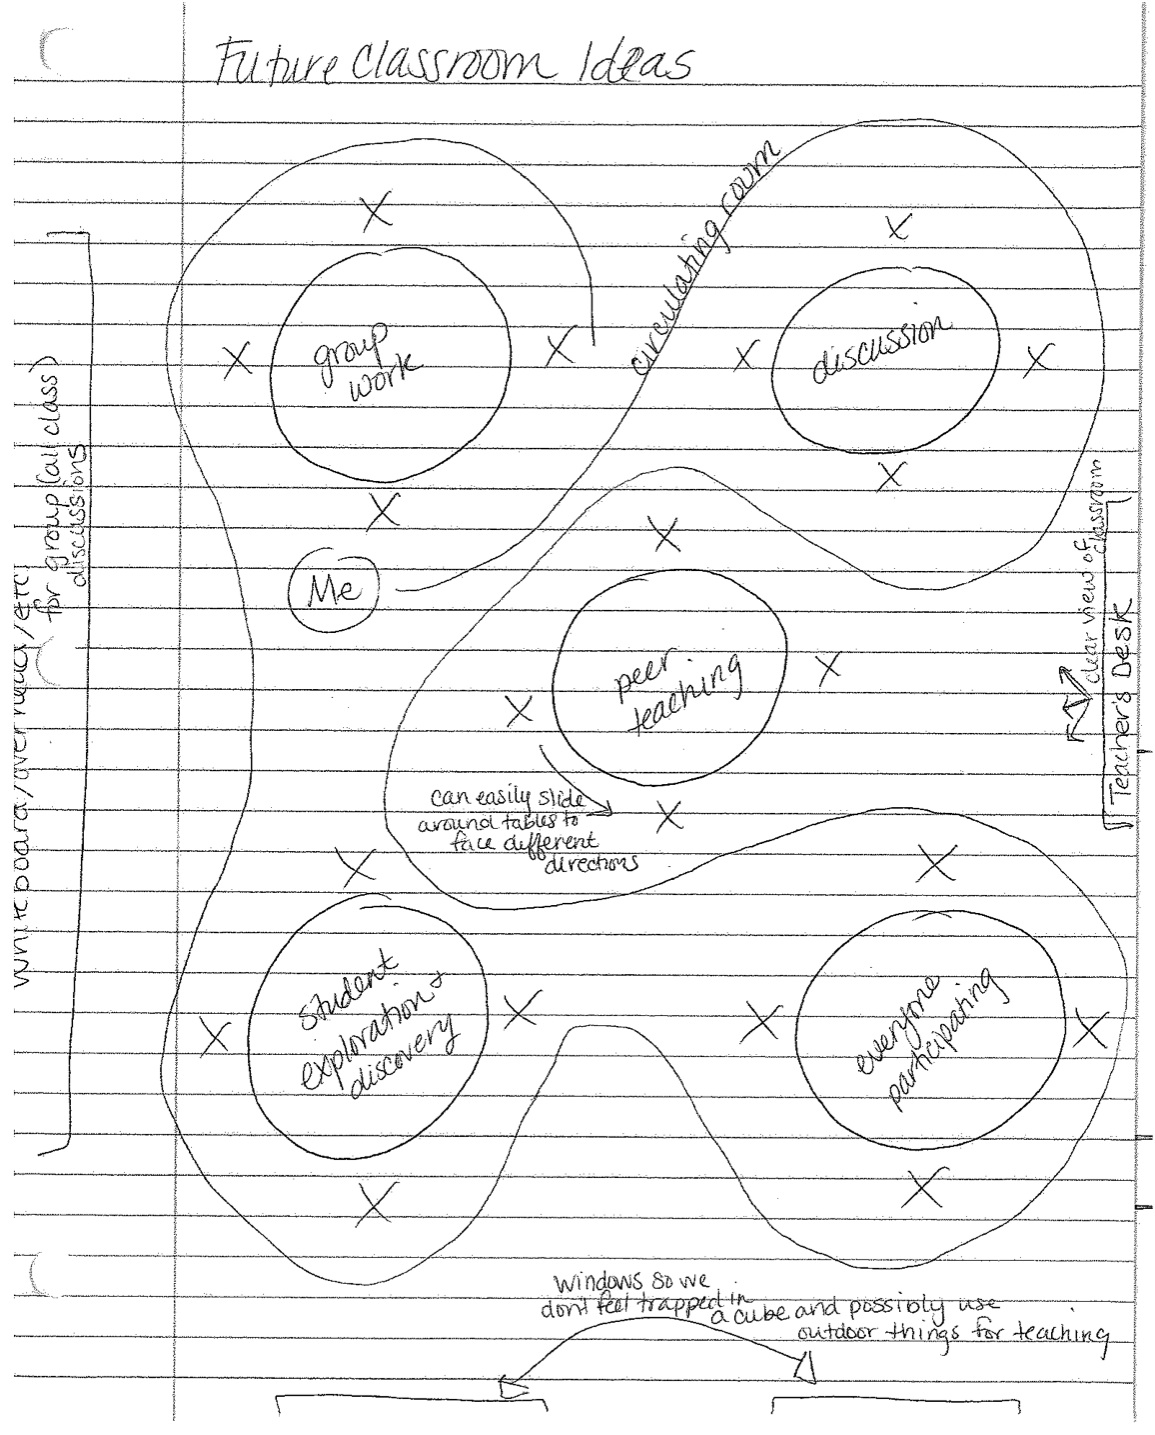 Future Classroom Ideas
circulating room
group
work
discussion
for group (all class)
discussions
whiteboard/overhead/etc.
Me
clear view of
classroom
Teacher's Desk
peer
teaching
can easily slide
around tables to
face different
directions
student
exploration +
discovery
everyone
participating
windows so we
don't feel trapped in
a cube and possibly use
outdoor things for teaching